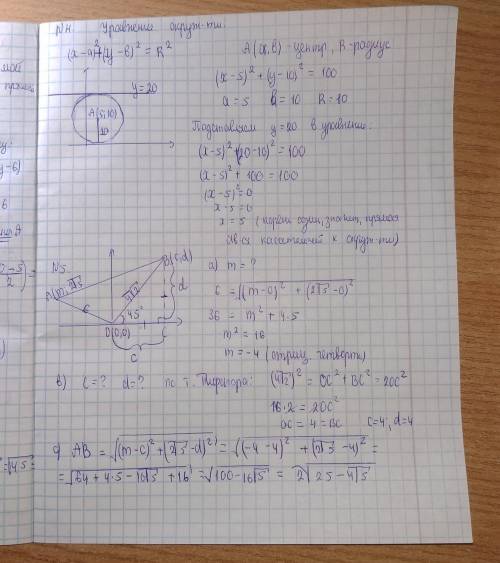 N4. Уравнение окруж-ти.
(x-a)²+(y-b)² = R²
A(a,b) - центр, R-радиус
(x-5)² + (y-10)² = 100
a = 5 b = 10 R = 10
y=20
A(5;10)
10
Подставляем y=20 в уравнение.
(x-5)²+(20-10)² = 100
(x-5)² + 100 = 100
(x-5)² = 0
x-5 = 0
x = 5 (корень один, значит, прямая
яв-ся касательной к окруж-ти)
N5
A(m, 2√5)
B(c,d)
6
4√2
45°
d
O(0,0)
c
C
а) m = ?
6 = √((m-0)² + (2√5-0)²)
36 = m² + 4·5
m² = 16
m = -4 (отриц. четверть)
в) c = ? d = ? по т. Пифагора: (4√2)² = OC² + BC² = 2OC²
16·2 = 2OC²
OC = 4 = BC c=4, d=4
с) AB = √((m-c)² + (2√5-d)²) = √((-4-4)² + (2√5-4)²) =
= √(64 + 4·5 - 16√5 + 16) = √(100-16√5) = 2√(25-4√5)